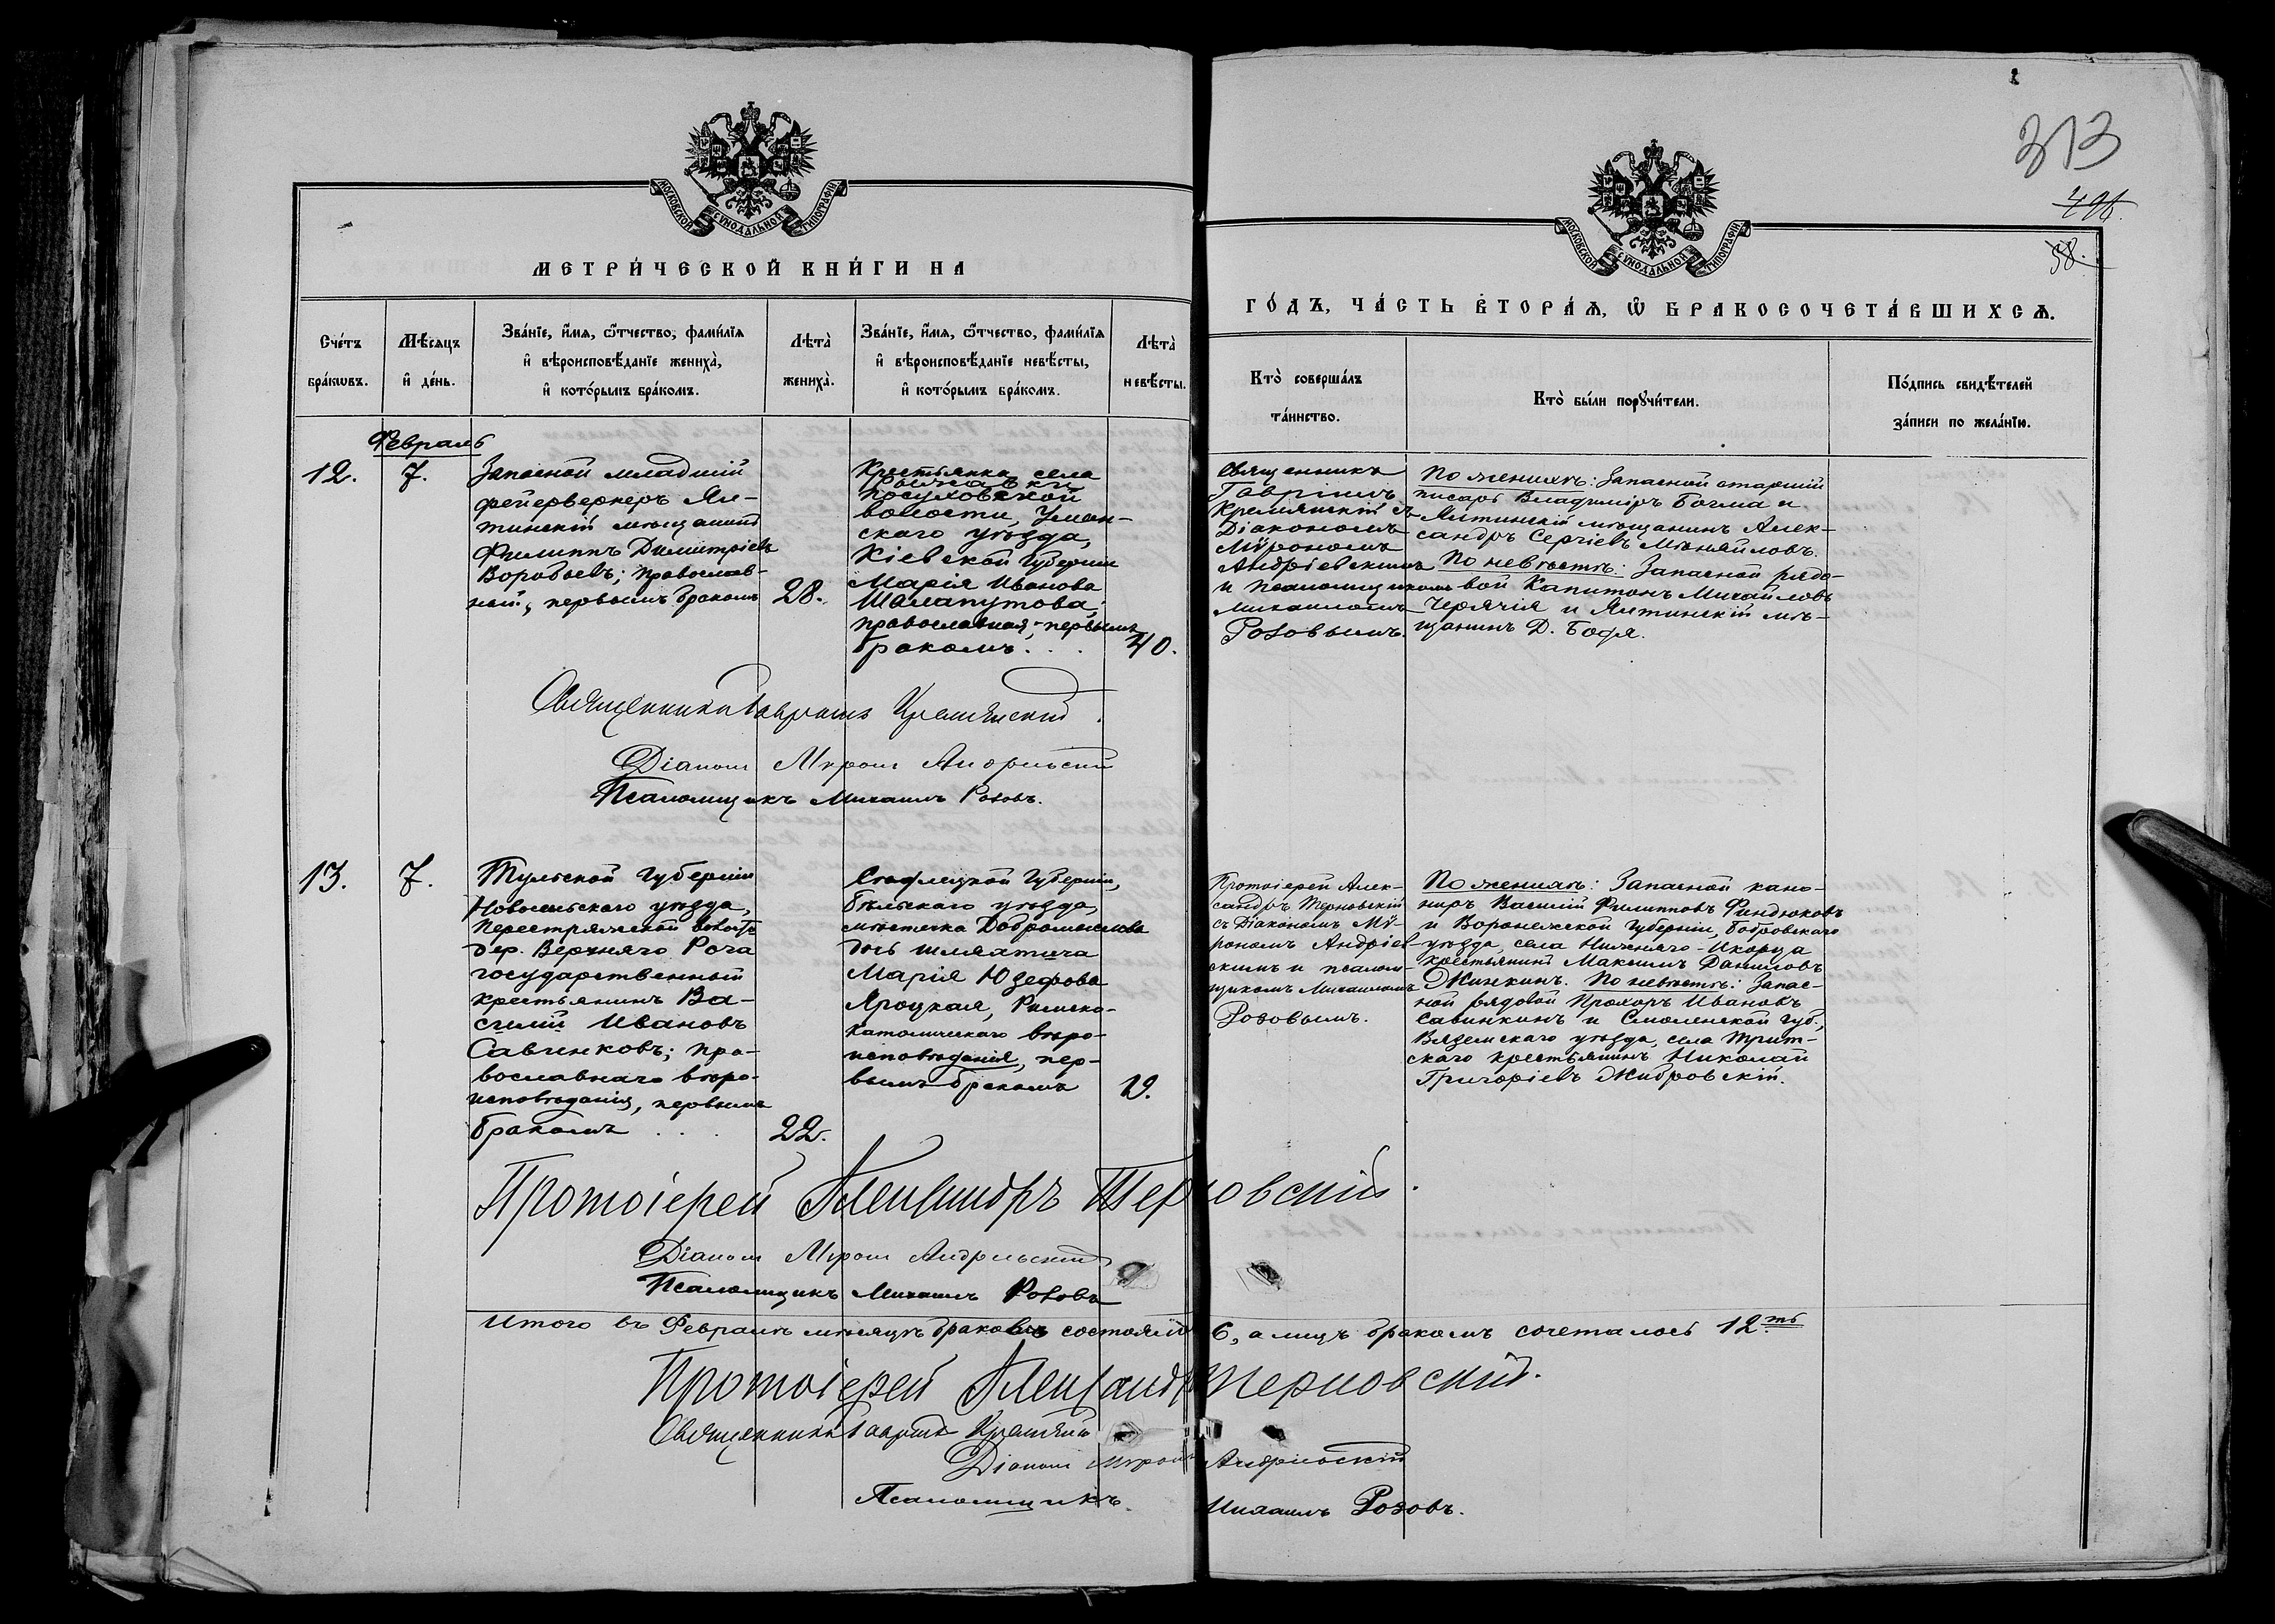 313
496.
58.
МОСКОВСКОЙ СѴНОДАЛЬНОЙ ТИПОГРАФІИ
МОСКОВСКОЙ СѴНОДАЛЬНОЙ ТИПОГРАФІИ
МЕТРИ́ЧЕСКОЙ КНИ́ГИ НА
ГО́ДЪ, ЧА́СТЬ ВТОРА́Я, Ѡ БРАКОСОЧЕТА́ВШИХСЯ.
Сче́тъ
бра́кωвъ.
Мѣ́сяцъ
и҆ де́нь.
Зва́нїе, и҆́мя, ѻ҆́тчество, фами́лїя
и҆ вѣроисповѣ́данїе жениха̀,
и҆ кото́рымъ бра́комъ.
Лѣта̀
жениха̀.
Зва́нїе, и҆́мя, ѻ҆́тчество, фами́лїя
и҆ вѣроисповѣ́данїе невѣ́сты,
и҆ кото́рымъ бра́комъ.
Лѣта̀
невѣ́сты.
Кто̀ соверша́лъ
та́инство.
Кто̀ бы́ли порꙋчи́тели.
По́дпись свидѣ́телей
за́писи по жела́нїю.
Февраль
12.
7.
Запасной младшій
фейерверкеръ Ял-
тинскій мѣщанинъ
Филиппъ Димитріевъ
Воробьевъ; православ-
ный, первымъ бракомъ
28.
Крестьянка села
волости, Уман-
скаго уѣзда,
Кіевской губерніи
Марія Иванова
Шалапутова,
православная, первымъ
бракомъ. . .
40.
Священникъ
Гавріилъ
Кремянскій съ
Діакономъ
Мѵрономъ
Андріевскимъ
и псаломщикомъ
Михаиломъ
Розовымъ.
По женихѣ: Запасной старшій
писарь Владиміръ Бочма и
Ялтинскій мѣщанинъ Алек-
сандръ Сергіевъ Мѣняйловъ.
По невѣстѣ: Запасной рядо-
вой Капитонъ Михайловъ
и Ялтинскій мѣ-
щанинъ Д. Бофя.
Священникъ Гавріилъ Кремянскій.
Діаконъ Мѵронъ Андріевскій
Псаломщикъ Михаилъ Розовъ.
13.
7.
Тульской губерніи
Новосильскаго уѣзда,
волости
дер. Верхняго Рога
государственный
крестьянинъ Ва-
силій Ивановъ
Савинковъ; пра-
вославнаго вѣро-
исповѣданія, первымъ
бракомъ . . .
22.
Сѣдлецкой губерніи,
Бѣльскаго уѣзда,
мѣстечка
дочь шляхтича
Марія Юзефова
Яроцкая, Римско-
католическаго вѣро-
исповѣданія, пер-
вымъ бракомъ
19.
Протоіерей Алек-
сандръ Терновскій
съ Діакономъ Мѵ-
рономъ Андріев-
скимъ и псалом-
щикомъ Михаиломъ
Розовымъ.
По женихѣ: Запасной кано-
ниръ Василій Филипповъ Финдюковъ
и Воронежской губерніи, Бобровскаго
уѣзда, села Нижняго-Икорца
крестьянинъ Максимъ Даниловъ
Жинкинъ. По невѣстѣ: Запас-
ной рядовой Прохоръ Ивановъ
Савинкинъ и Смоленской губ.,
Вяземскаго уѣзда, села
скаго крестьянинъ Николай
Григоріевъ Жибровскій.
Протоіерей Александръ Терновскій.
Діаконъ Мѵронъ Андріевскій
Псаломщикъ Михаилъ Розовъ
Итого въ Февралѣ мѣсяцѣ браковъ состояло 6, а лицъ бракомъ сочеталось 12ть
Протоіерей Александръ Терновскій.
Священникъ Гавріилъ Кремянскій
Діаконъ Мѵронъ Андріевскій
Псаломщикъ Михаилъ Розовъ.